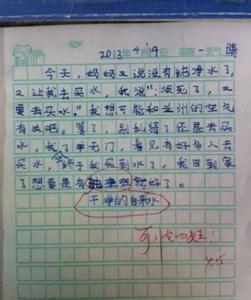 2013年4月14日 星期一 天气 晴
今天，妈妈又说没有纯净水了，
又让我去买水，我说"烦死了，又
要去买水。"我想可能和兰州的空气
有关吧。算了，别扯猪了还是去买
水，我了半天门，看见有好多人去
买水，终于我买到水了，我回到家
了想要是有就好了。
干净的自来水
可怜的娃！
4.15